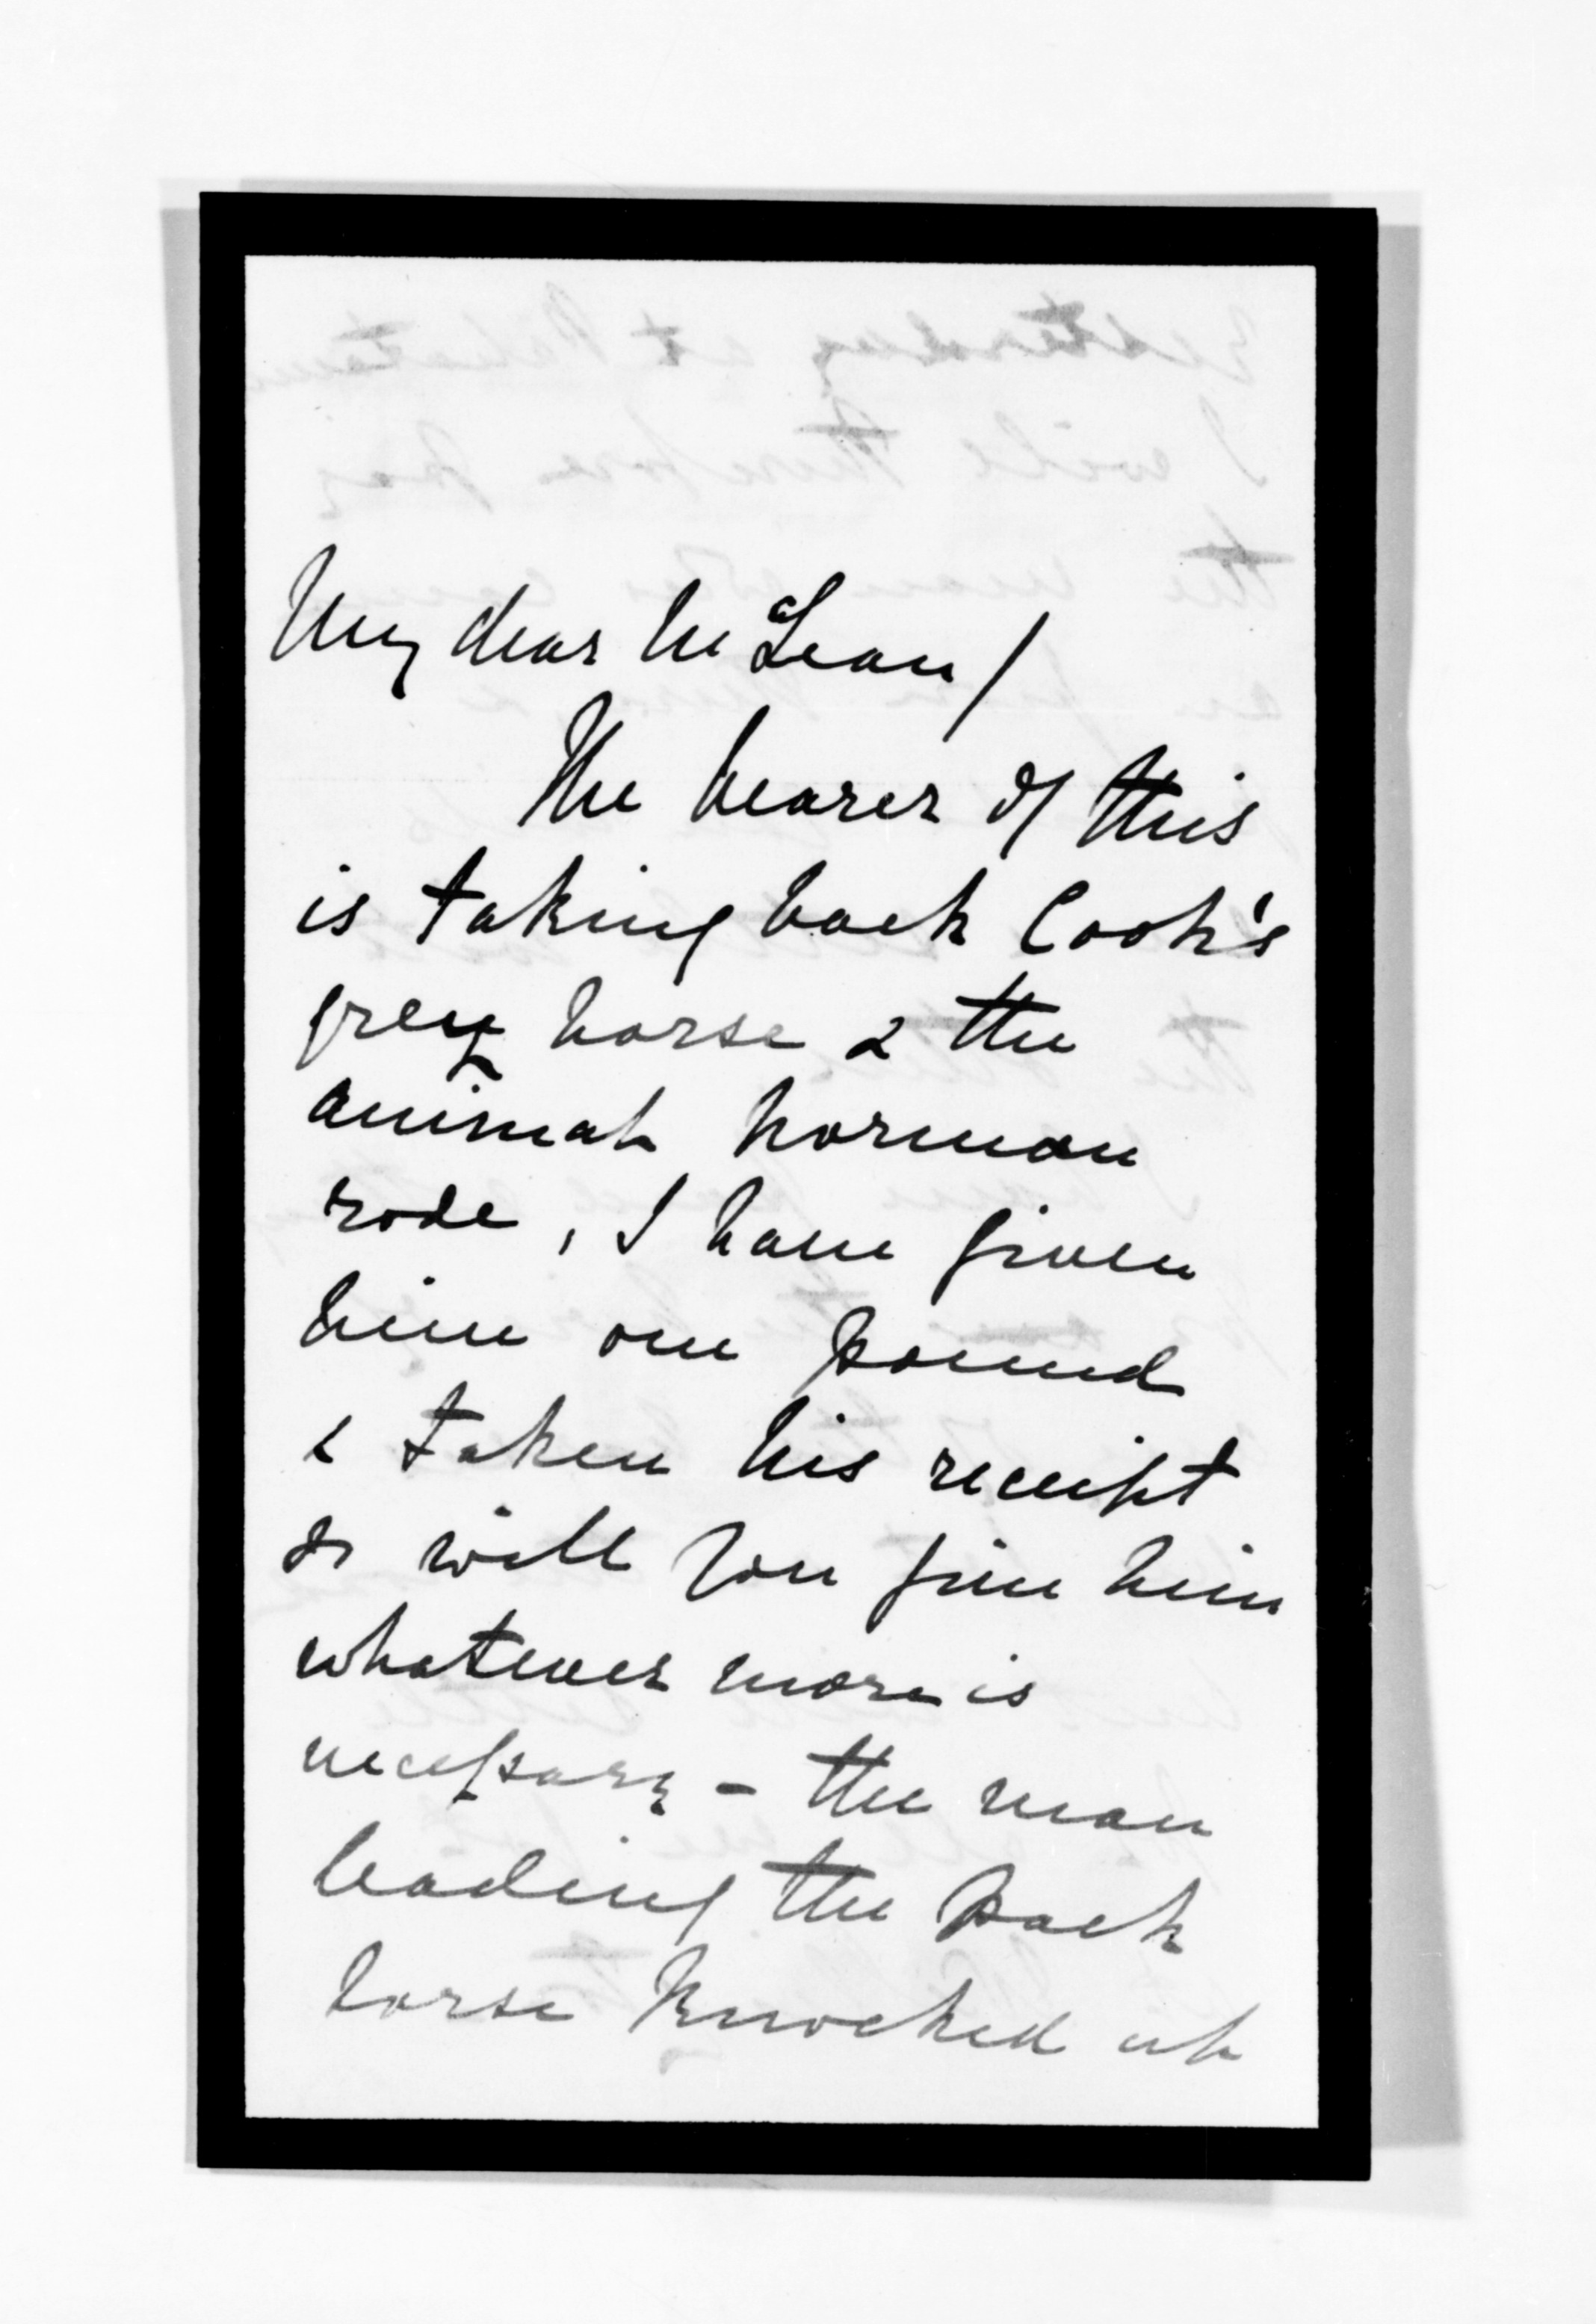 My dear McLean/
The bearer of this
is taking back Cook's
grey horse & the
animal Norman
rode, I have given
him one pound
& taken his receipt
or will you give him
whatever more is
necessary - the man
leading the pack
horse knocked up